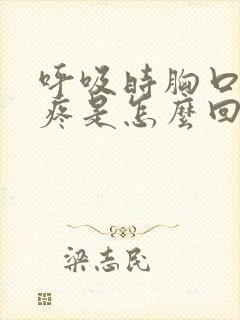 呼吸時胸口
疼是怎麼回
梁志民